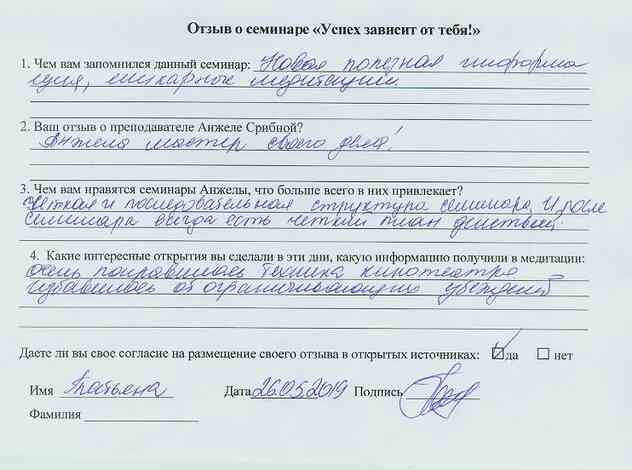 Отзыв о семинаре «Успех зависит от тебя!»
1. Чем вам запомнился данный семинар: Новая полезная информа
ция, шикарные медитации.
2. Ваш отзыв о преподавателе Анжеле Срибной?
Анжела мастер своего дела!
3. Чем вам нравятся семинары Анжелы, что больше всего в них привлекает?
Четкая и последовательная структура семинара. И после
семинара всегда есть четкий план действий.
4. Какие интересные открытия вы сделали в эти дни, какую информацию получили в медитации:
Очень понравилась техника кинотеатра
избавилась от ограничивающих убеждений
Даете ли вы свое согласие на размещение своего отзыва в открытых источниках: ☑ да ☐ нет
Имя Татьяна Дата 26.05.2019 Подпись
Фамилия